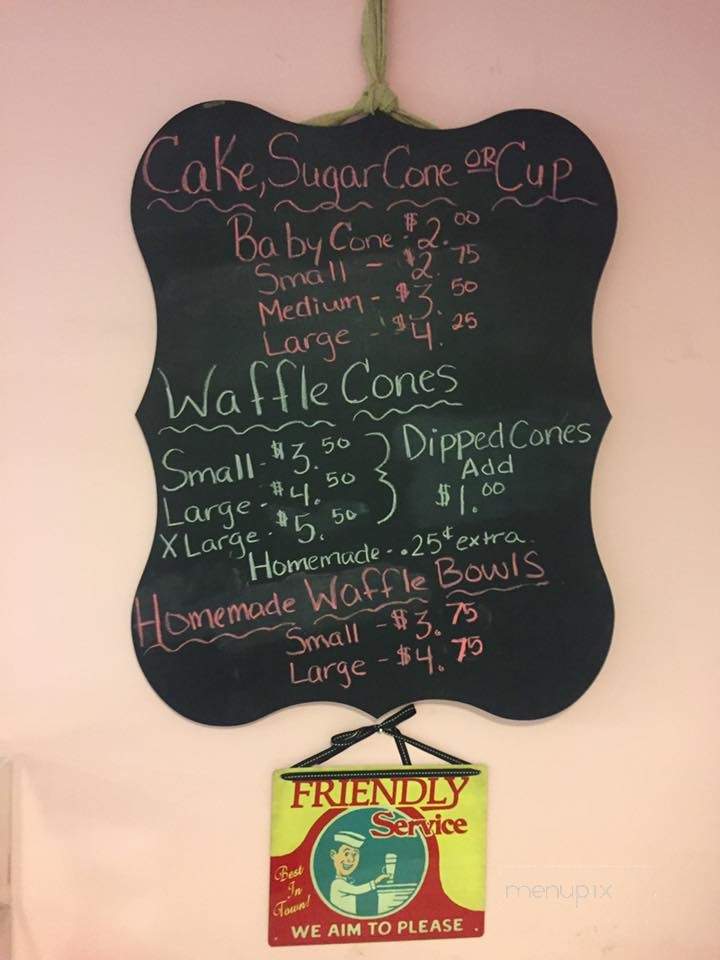 Cake, Sugar Cone OR Cup
Baby Cone $2.00
Small - $2.75
Medium - $3.50
Large - $4.25
Waffle Cones
Small - $3.50
Large - $4.50
X Large - $5.50
Dipped Cones
Add
$1.00
Homemade - .25¢ extra.
Homemade Waffle Bowls
Small - $3.75
Large - $4.75
FRIENDLY
Service
Best
In
Town!
WE AIM TO PLEASE
menupix